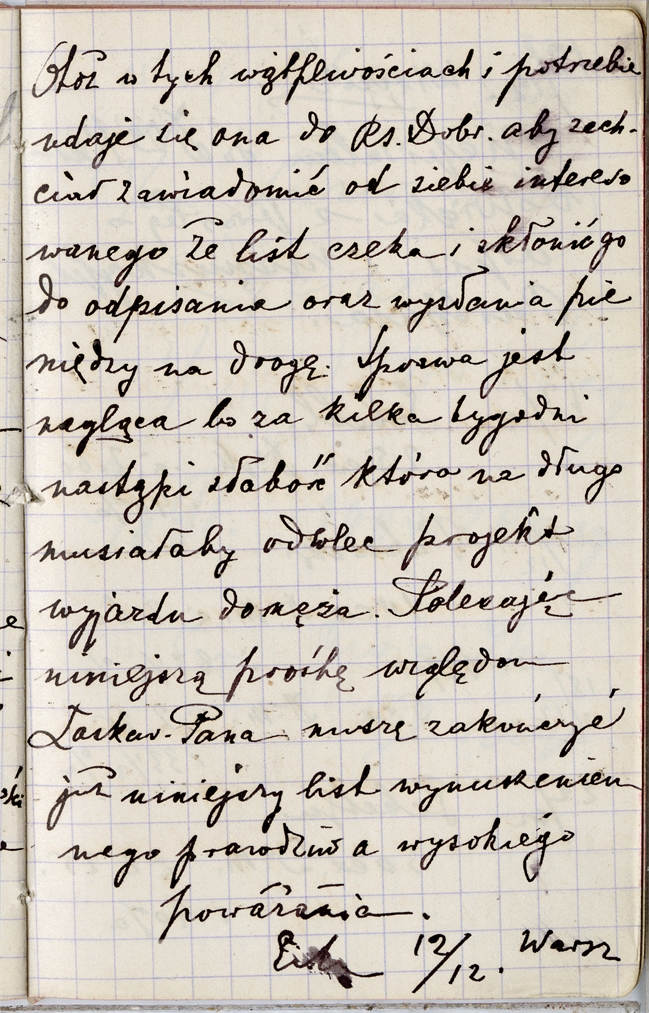 Otóż w tych wątpliwościach i potrzebie
udaje się ona do Ks. Dobr. aby zech-
ciał zawiadomić od siebie intereso
wanego że list czeka i skłonić go
do odpisania oraz wysłania pie
niędzy na drogę. Sprawa jest
nagląca bo za kilka tygodni
nastąpi słabość która na długo
musiałaby odwlec projekt
wyjazdu do męża. Polecając
niniejszą prośbę względom
Łaskaw. Pana muszę zakończyć
już niniejszy list wynurzeniem
nego prawdziw a wysokiego
poważania.
12/12. Warsz